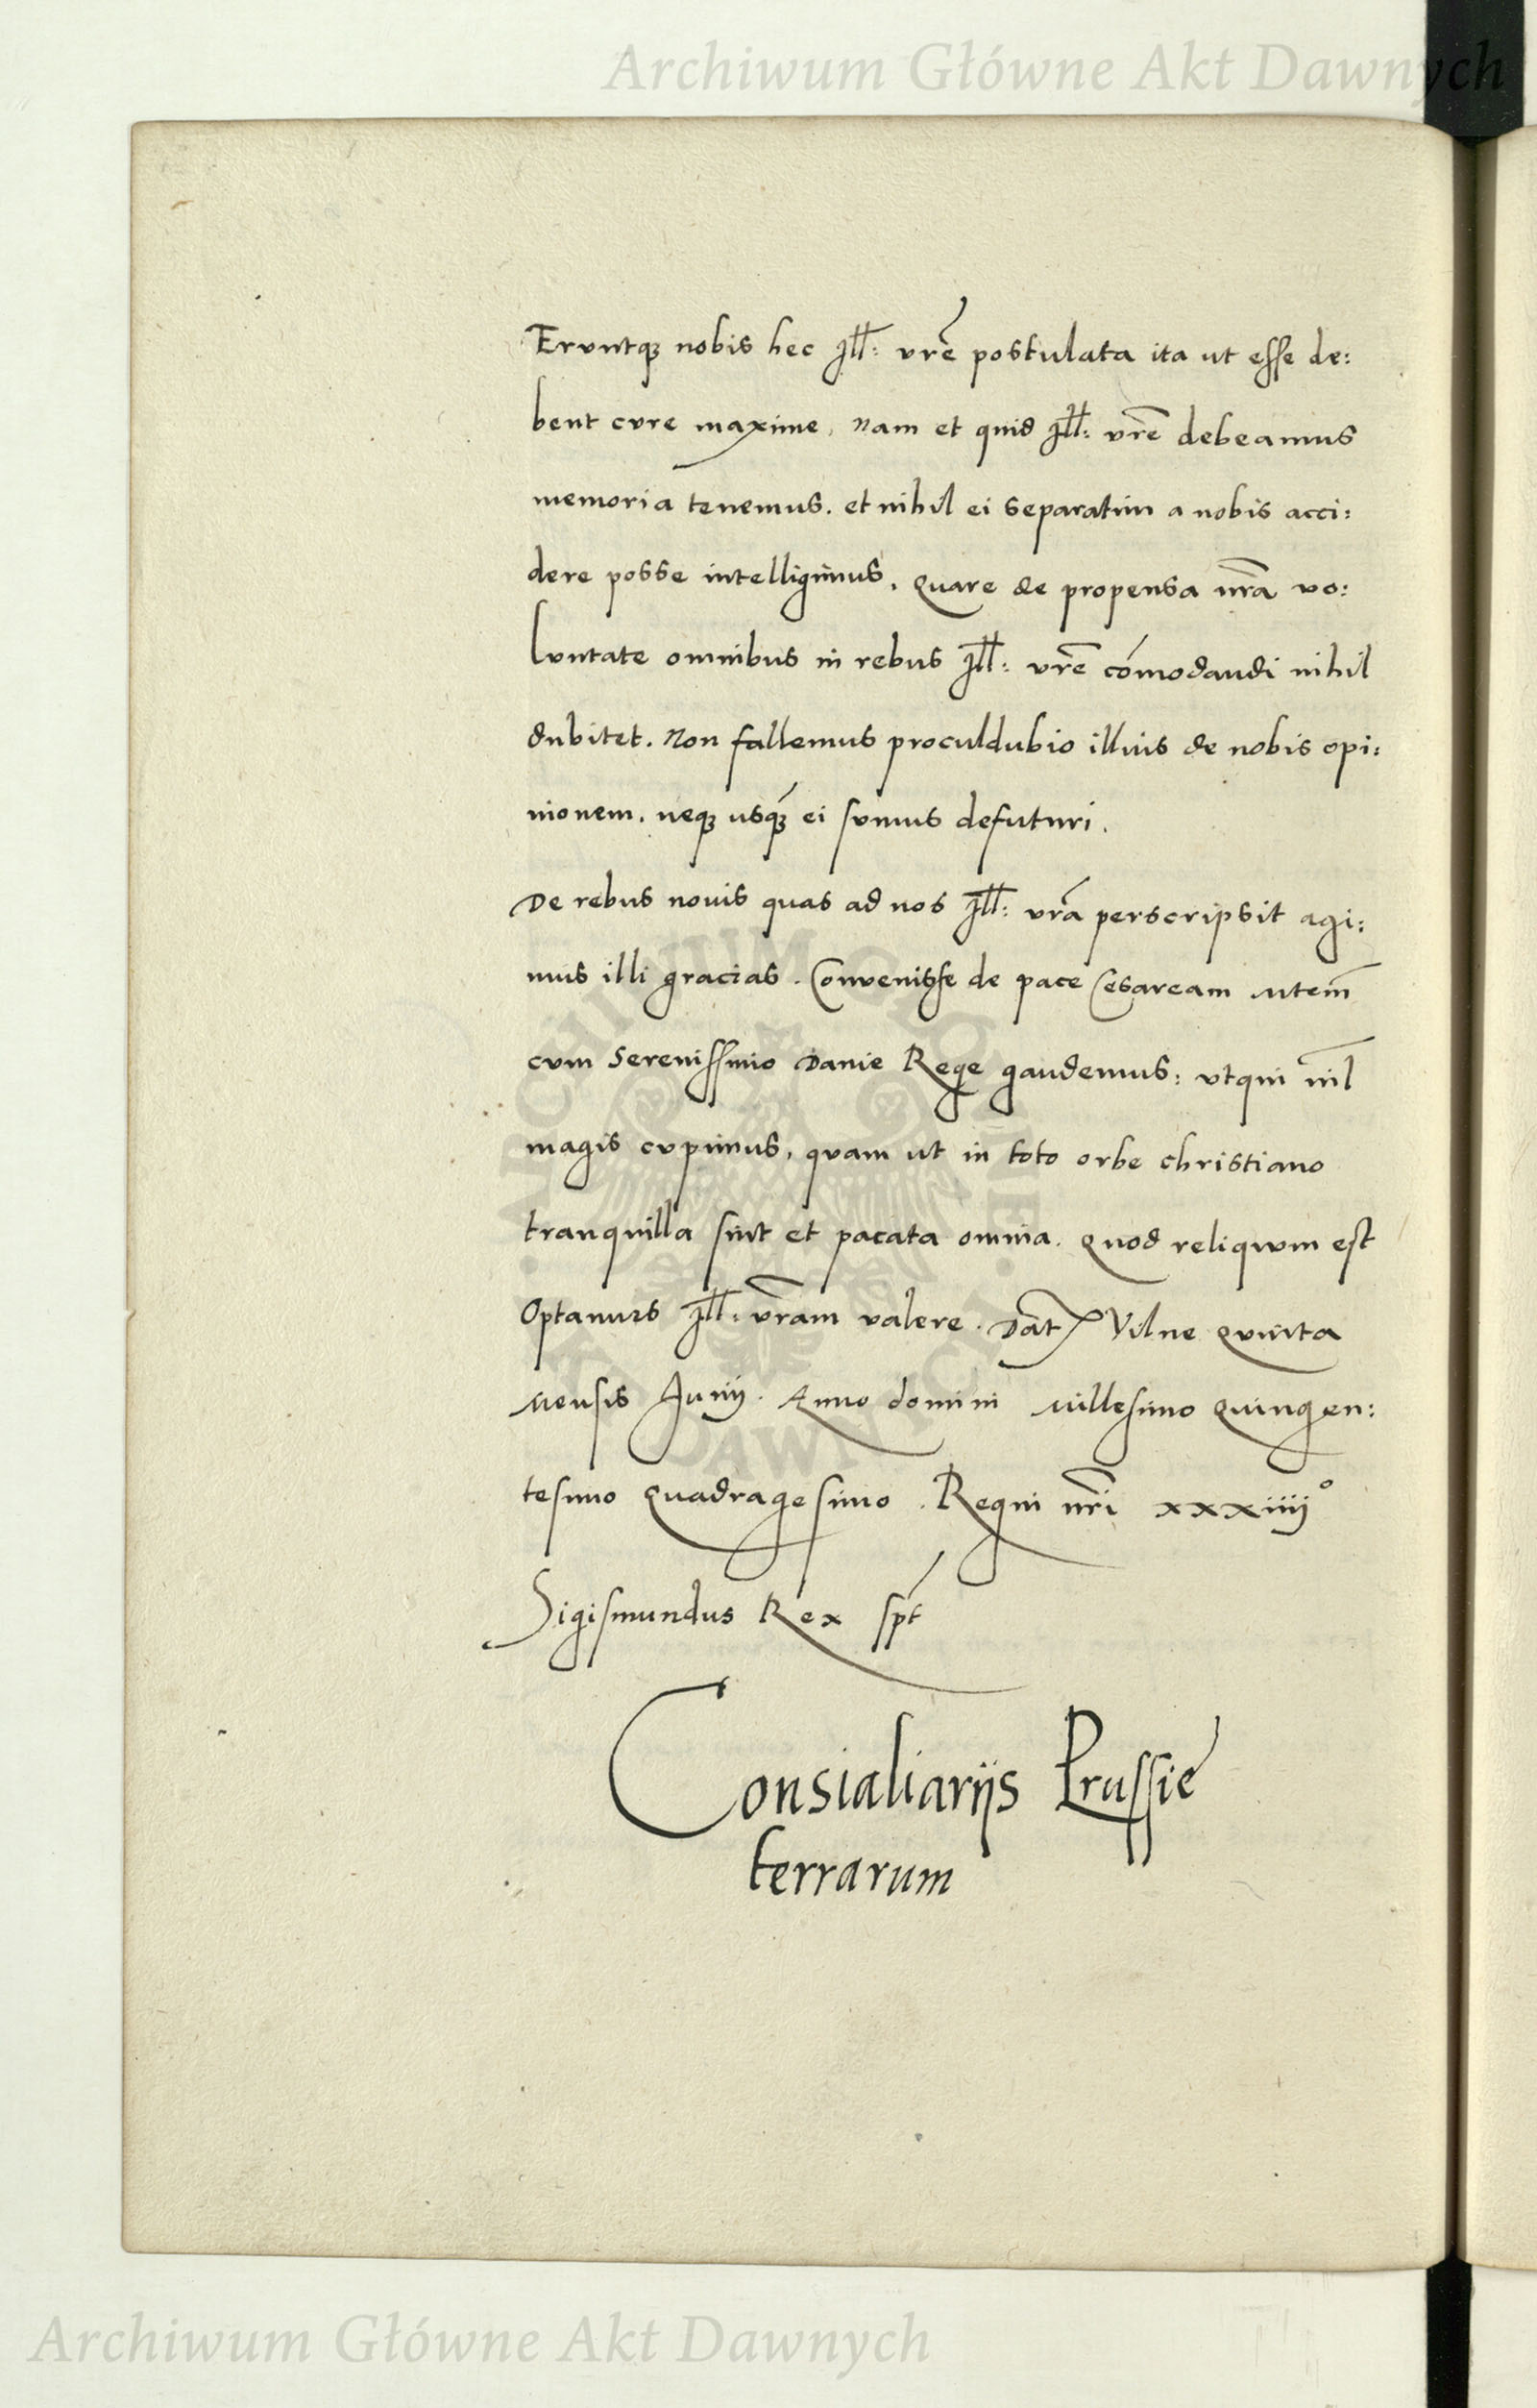 Archiwum Główne Akt Dawnych
Eruntqꝫ nobis hec Jll: vr̃e postulata ita ut esse de:
bent cure maxime, Nam et quid Jll: vr̃e debeamus
memoria tenemus. et nihil ei separatim a nobis acci:
dere posse intelligimus, quare de propensa nr̃a vo:
luntate omnibus in rebus Jll: vr̃e cõmodandi nihil
dubitet. Non fallemus proculdubio illius de nobis opi:
nionem. neqꝫ usqꝫ ei sumus defuturi.
De rebus nouis quas ad nos Jll: vr̃a perscripsit agi:
mus illi gracias. Convenisse de pace Cesaream Mtem̃
cum Serenissimo Danie Rege gaudemus: utqui nil̃
magis cupimus, quam ut in toto orbe christiano
tranquilla sint et pacata omnia. Quod reliquum est
Optamus Jll: vr̃am valere. Dat̃ Vilne quinta
Mensis Junij. Anno domini Millesimo quingen:
tesimo quadragesimo. Regni nr̃i xxxiiij°
Sigismundus Rex spt̃
Consialiarijs Prussie
terrarum
Archiwum Główne Akt Dawnych